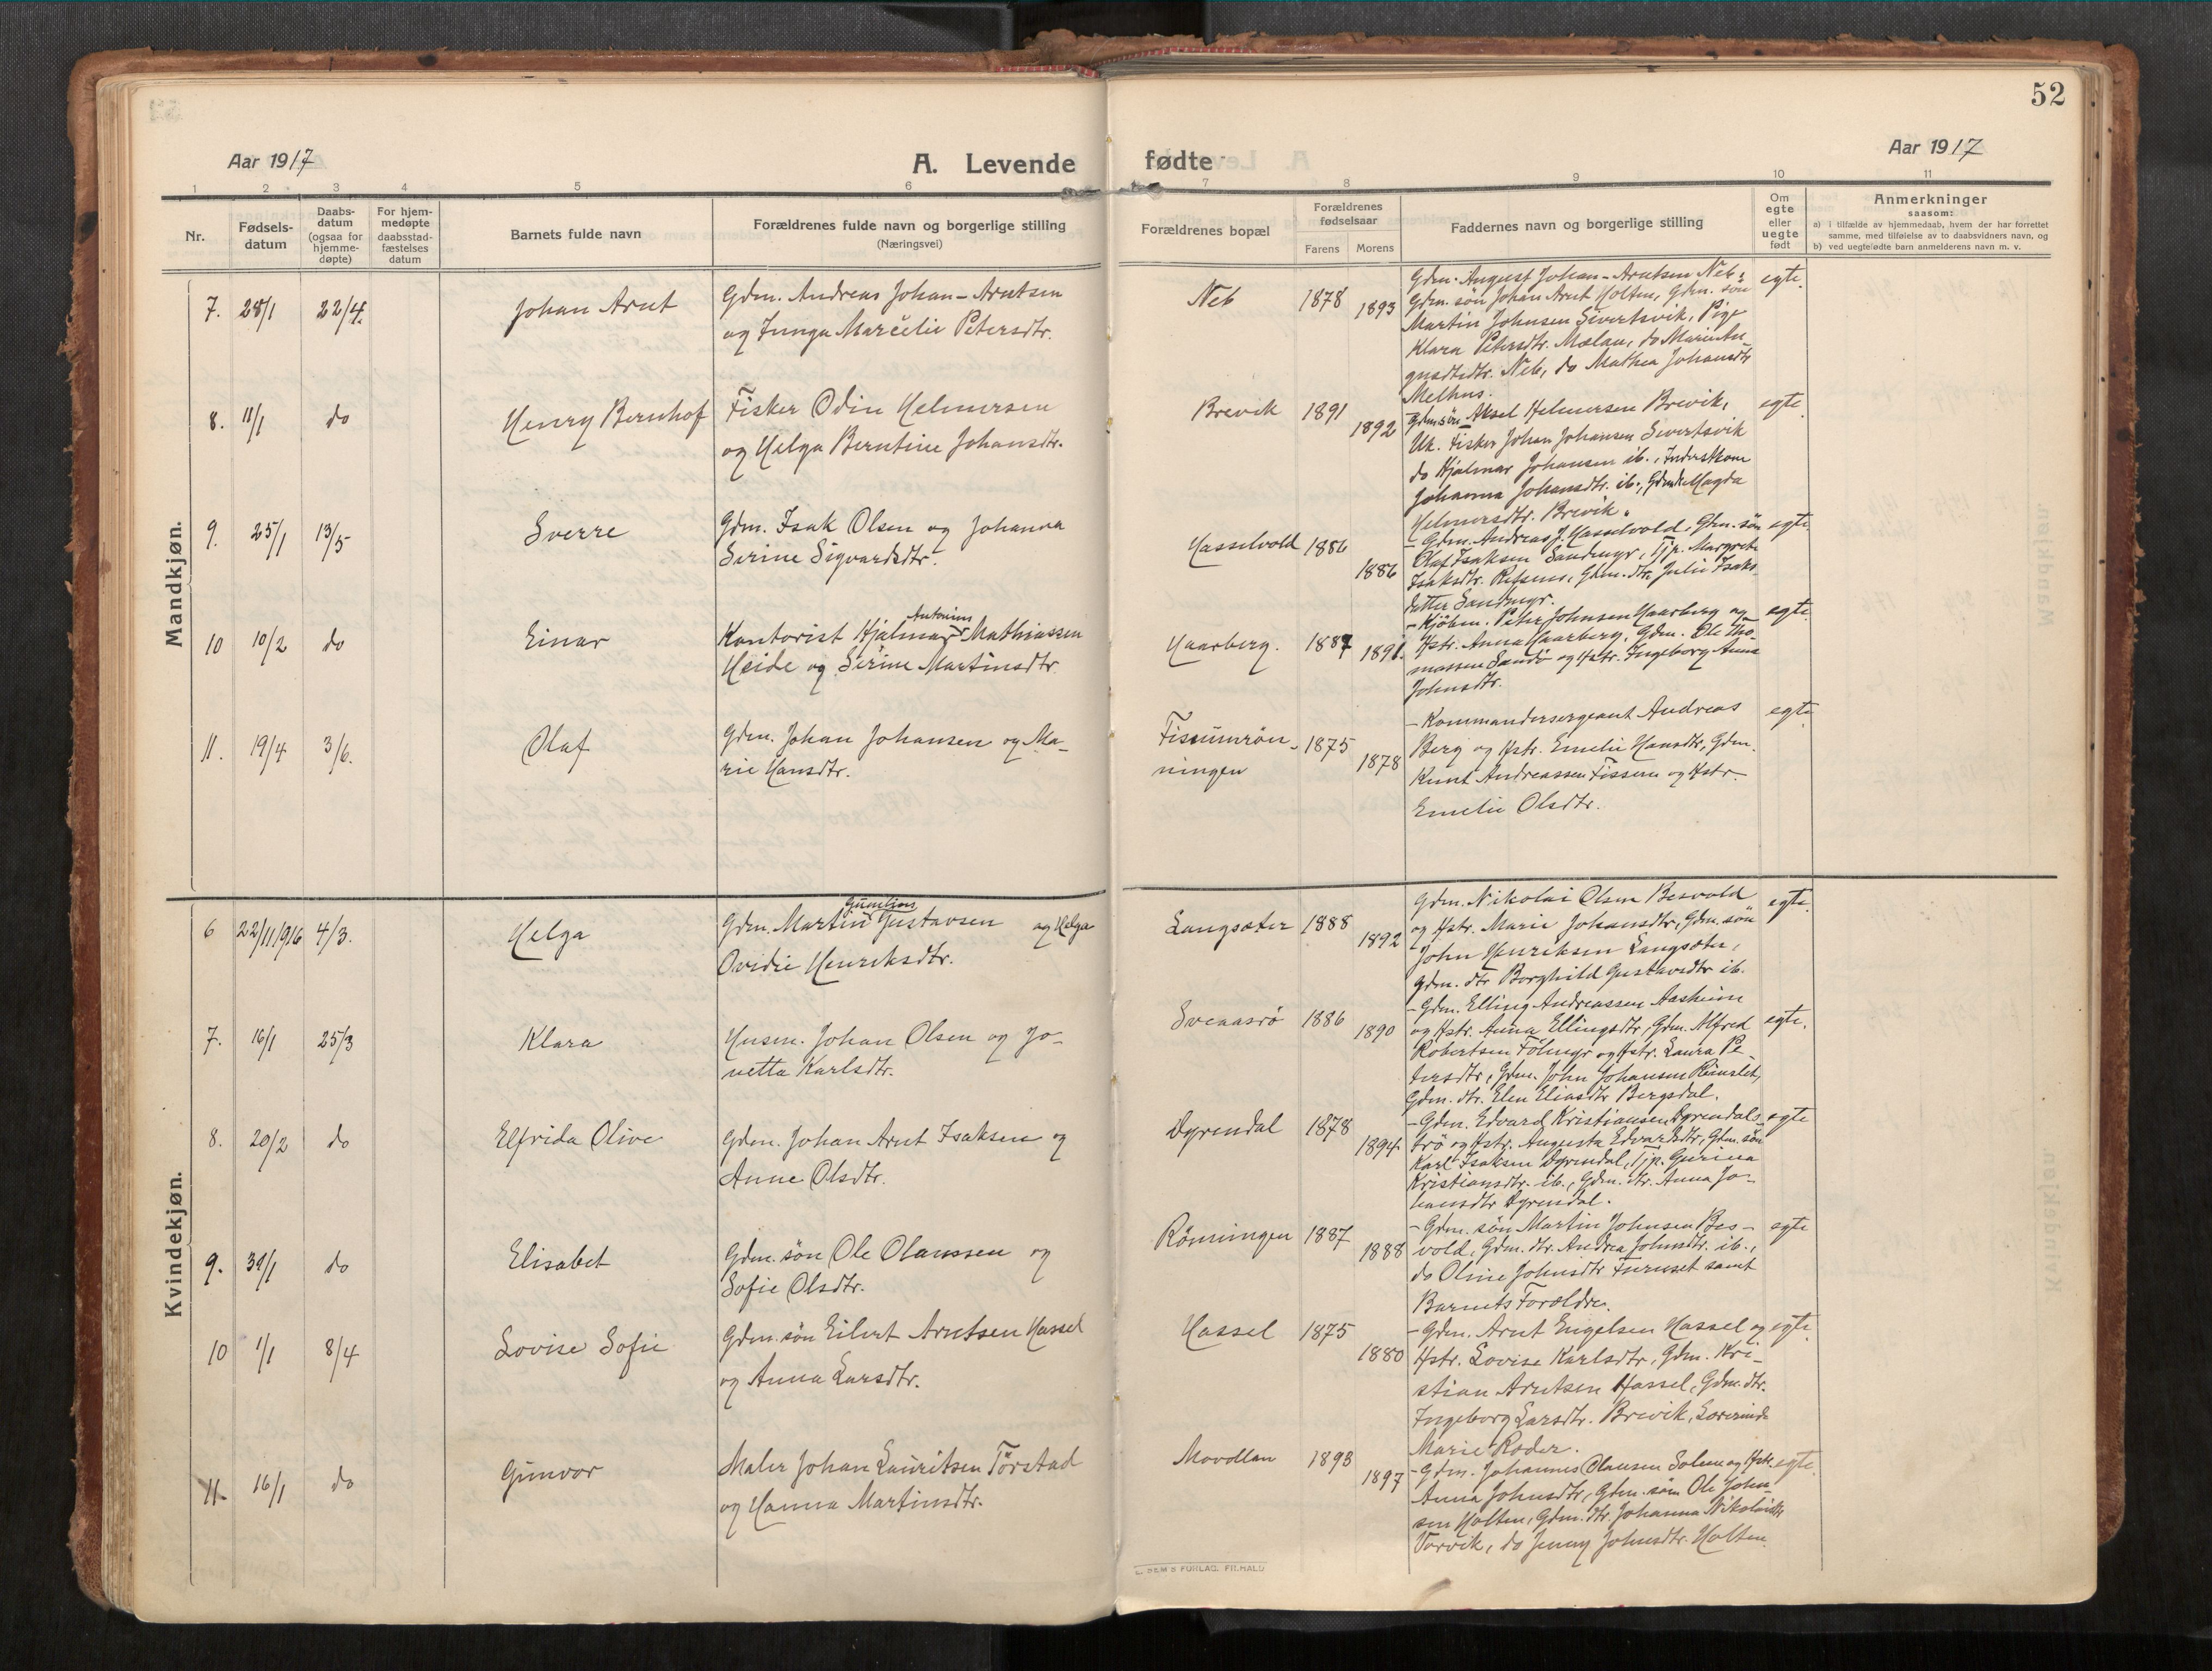 52
Aar 1917
A. Levende fødte
Aar 1917
1 2 3 4 5 6 7 8 9 10 11
Nr.
Fødsels-
datum
Daabs-
datum
(ogsaa for
hjemme-
døpte)
For hjem-
medøpte
daabsstad-
fæstelses
datum
Barnets fulde navn
Forældrenes fulde navn og borgerlige stilling
(Næringsvei)
Forældrenes bopæl
Forældrenes
fødselsaar
Farens Morens
Faddernes navn og borgerlige stilling
Om
egte
eller
uegte
født
Anmerkninger
saasom:
a) i tilfælde av hjemmedaab, hvem der har forrettet
samme, med tilføielse av to daabsvidners navn, og
b) ved uegtefødte barn anmelderens navn m. v.
Mandkjøn.
7. 28/1 22/4. Johan Arnt
Gdm. Andreas Johan-Arntsen
og Inga Marcelie Petersdtr.
Neb 1878 1893
Gdm. August Johan-Arntsen Neb,
Gdm. søn Johan Arnt Holten, Gdm. søn
Martin Johnsen Sivertsvik, Pige
Klara Petersdtr. Mælan, do Marie Au
gustsdtr. Neb, do Mathea Johansdtr
Melhus.
egte.
8. 11/1 do Henry Bernhof
Fisker Odin Helmersen
og Helga Berntine Johansdtr.
Brevik 1891 1892
Gdmsøn Aksel Helmersen Brevik,
Uk. Fisker Johan Johansen Sivertsvik
do Hjalmar Johansen ib.,
Johanna Johansdtr. ib., Magda
Helmersdtr. Brevik.
egte.
9. 25/1 13/5 Sverre
Gdm. Isak Olsen og Johanna
Serine Sigvardsdtr.
Hasselvold 1886 1886
- Gdm. Andreas J. Hasselvold, Gdm. søn
Olaf Isaksen Sandmyr, Tjp. Margrete
Isaksdtr. Refsnes, Gdm. dtr. Julie Isaks-
datter Sandmyr.
egte.
10 10/2 do Einar
Antonius
Kontorist Hjalmar Mathiassen
Heide og Serine Martinsdtr.
Haarberg. 1887 1891.
- Kjøbm. Peter Johnsen Haarberg og
Hstr. Anna Haarberg, Gdm. Ole Tho-
massen Sandø og Hstr. Ingeborg Anna
Johnsdtr.
egte.
11. 19/4 3/6. Olaf
Gdm. Johan Johansen og Ma-
rie Hansdtr.
Fissumrøn-
ningen 1875 1878
- Kommandersergeant Andreas
Berg og Hstr. Emelie Hansdtr, Gdm.
Knut Andreassen Fissum og Hstr.
Emelie Olsdtr.
egte.
Kvindekjøn.
6 22/11 1916 4/3. Helga
Gdm. Martin Gustavsen og Helga
Ovidie Henriksdtr.
Langsæter 1888 1892
Gdm. Nikolai Olsen Besvold
og Hstr. Marie Johansdtr, Gdm. søn
John Henriksen Langsæter,
Gdm. dtr Borghild Gustavsdtr ib.
egte.
7. 16/1 25/3 Klara
Husm. Johan Olsen og Jo-
netta Karlsdtr.
Svenasrø 1886 1890
- Gdm. Elling Andreassen Aasheim
og Hstr. Anna Ellingsdtr, Gdm. Alfred
Robertsen Følmyr og Hstr. Laura Pe-
tersdtr, Gdm. John Johansen
Gdm. dtr. Elen Eliasdtr Bergsdal.
egte.
8. 20/2 do Elfrida Olive
Gdm. Johan Arnt Isaksen og
Anne Olsdtr.
Dyrendal 1878 1894
- Gdm. Edvard Kristiansen Dyrendals-
trø og Hstr. Augusta Edvardsdtr, Gdm. søn
Karl Isaksen Dyrendal, Tjp. Gurina
Kristiansdtr. ib., Gdm. dtr. Anna Jo-
hansdtr Dyrendal.
egte
9. 31/1 do Elisabet
Gdm. søn Ole Olaussen og
Sofie Olsdtr.
Rønningen 1887 1888
- Gdm. søn Martin Johnsen Bes-
vold, Gdm. dtr. Andrea Johnsdtr. ib.,
do Oline Johnsdtr Furuset samt
Barnets Forældre.
egte
10 1/1 8/4 Lovise Sofie
Gdm. søn Eilert Arntsen Hassel
og Anna Larsdtr.
Hassel 1875 1880
- Gdm. Arnt Engelsen Hassel og
Hstr. Lovise Karlsdtr, Gdm. Kri-
stian Arntsen Hassel, Gdm. dtr.
Ingeborg Larsdtr. Brevik,
Marie Roder.
egte.
11. 16/1 do Gunvor
Maler Johan Lauritsen Tørstad
og Hanna Martinsdtr.
Movollan 1893 1897
- Gdm. Johannes Olausen Solem og Hstr.
Anna Johnsdtr, Gdm. søn Ole John-
sen Holten, Gdm. dtr. Johanna Nikolaisdtr
Vorvik, do Jenny Johnsdtr. Holten.
egte.
SEM'S FORLAG, FR.HALD